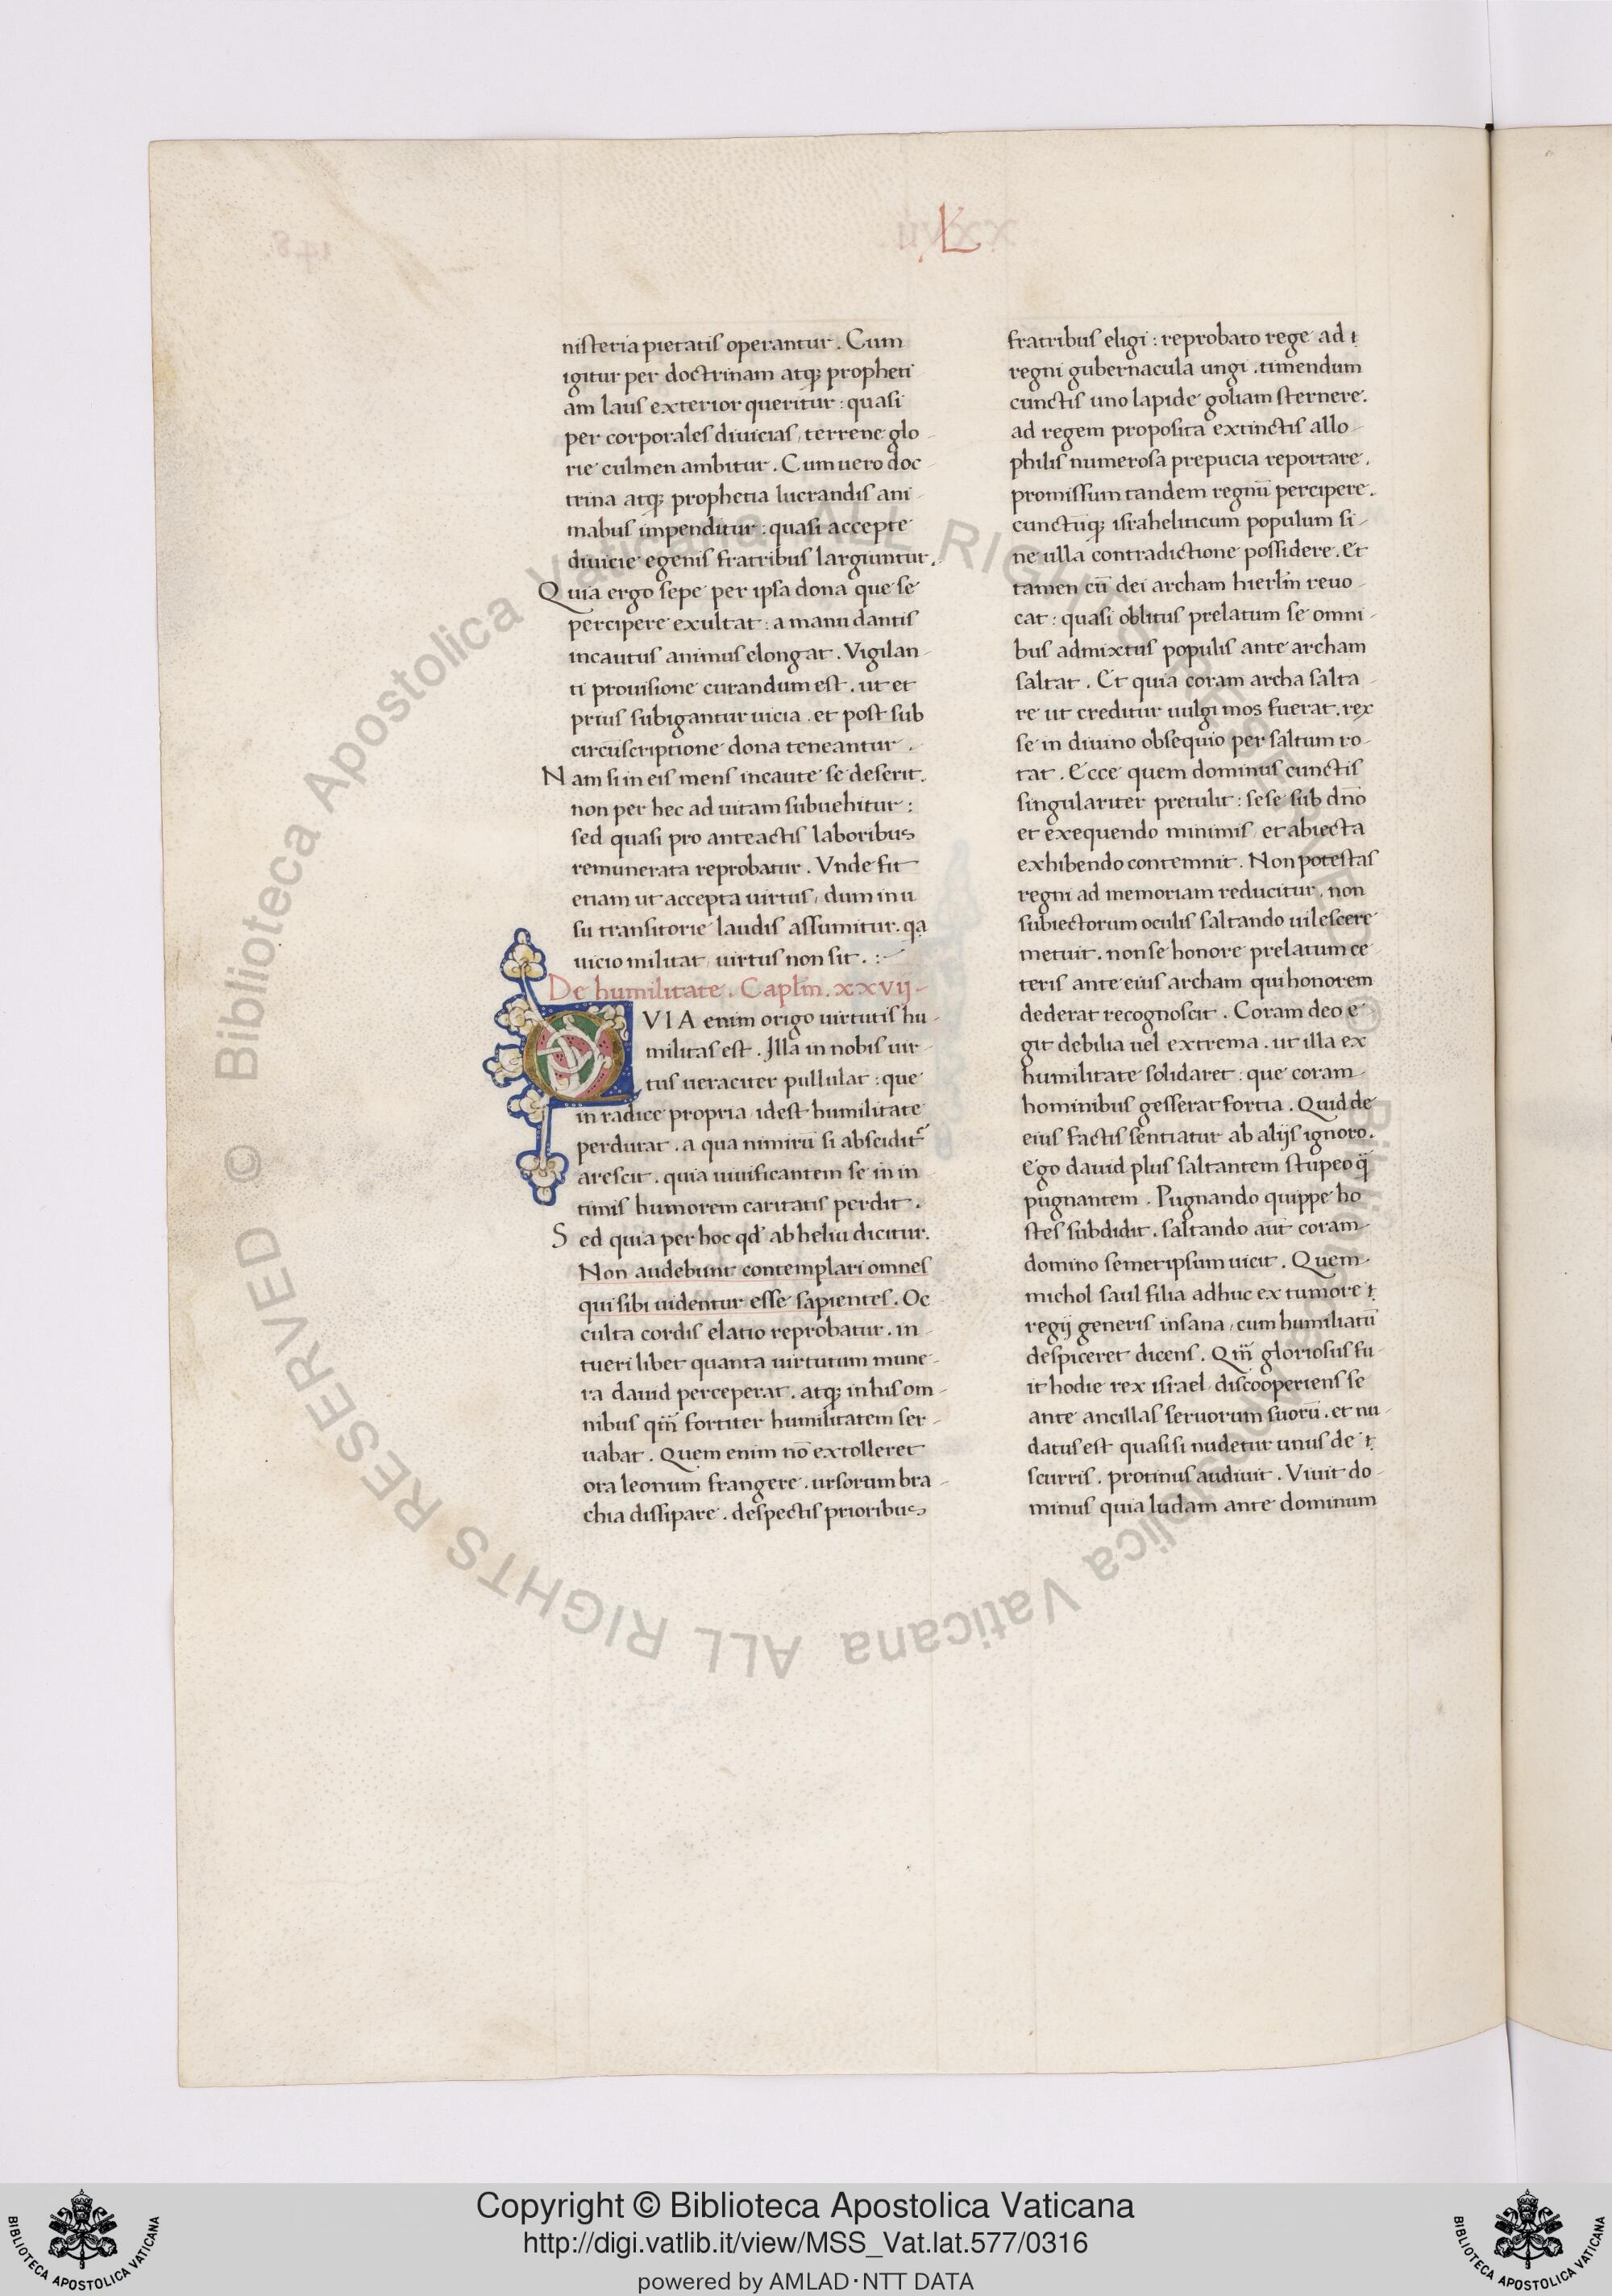 L
nisteria pietatis operantur. Cum
igitur per doctrinam atq; propheti
am laus exterior queritur: quasi
per corporales diuicias, terrene glo-
rie culmen ambitur. Cum uero doc
trina atq; prophetia lucrandis ani-
mabus impenditur: quasi accepte
diuicie egenis fratribus larguntur.
Quia ergo sepe per ipsa dona que se
percipere exultat: a manu dantis
incautus animus elongat. Vigilan-
ti prouisione curandum est. ut et
prius subigantur uicia. et post sub
circūscriptione dona teneantur.
Nam si in eis mens incaute se deserit.
non per hec ad uitam subuehitur:
sed quasi pro anteactis laboribus
remunerata reprobatur. Vnde fit
etiam ut accepta uirtus, dum in u
su transitorie laudis assumitur. qa
uicio militat, uirtus non sit. :-
De humilitate. Capl̄m. xxvij-
QVIA enim origo uirtutis hu-
militas est. Illa in nobis uir-
tus ueraciter pullulat: que
in radice propria, idest humilitate
perdurat. a qua nimirū si absciditr̄
arescit. quia uiuificantem se in in
timis humorem caritatis perdit.
Sed quia per hoc qd' ab heliu dicitur.
Non audebunt contemplari omnes
qui sibi uidentur esse sapientes. Oc
culta cordis elatio reprobatur. in-
tueri libet quanta uirtutum mune-
ra dauid perceperat. atq; in his om-
nibus qm̄ fortiter humilitatem ser-
uabat. Quem enim nō extolleret
ora leonum frangere. ursorum bra-
chia dissipare. despectis prioribus
fratribus eligi: reprobato rege ad
regni gubernacula ungi. timendum
cunctis uno lapide goliam sternere.
ad regem proposita extinctis allo-
philis numerosa prepucia reportare.
promissum tandem regnū percipere.
cunctūq; israheliticum populum si-
ne ulla contradictione possidere. Et
tamen cū dei archam hierl̄m reuo-
cat: quasi oblitus prelatum se omni-
bus admixtus populis ante archam
saltat. Et quia coram archa salta-
re ut creditur uulgi mos fuerat. rex
se in diuino obsequio per saltum ro-
tat. Ecce quem dominus cunctis
singulariter pretulit: sese sub dn̄o
et exequendo minimis, et abiecta
exhibendo contemnit. Non potestas
regni ad memoriam reducitur. non
subiectorum oculis saltando uilescere
metuit. non se honore prelatum ce
teris ante eius archam qui honorem
dederat recognoscit. Coram deo e-
git debilia uel extrema. ut illa ex
humilitate solidaret: que coram-
hominibus gesserat fortia. Quid de
eius factis sentiatur ab alijs ignoro.
Ego dauid plus saltantem stupeo q̄
pugnantem. Pugnando quippe ho
stes subdidit. saltando aūt coram-
domino semetipsum uicit. Quem-
michol saul filia adhuc ex tumore
regij generis insana, cum humiliatū
despiceret dicens. Qm̄ gloriosus fu-
it hodie rex israel, discooperiens se
ante ancillas seruorum suorū. et nu-
datus est quasi si nudetur unus de
scurris. protinus audiuit. Viuit do-
minus quia ludam ante dominum
Copyright © Biblioteca Apostolica Vaticana
http://digi.vatlib.it/view/MSS_Vat.lat.577/0316
powered by AMLAD·NTT DATA
BIBLIOTECA APOSTOLICA VATICANA
BIBLIOTECA APOSTOLICA VATICANA
© Biblioteca Apostolica Vaticana ALL RIGHTS RESERVED © Biblioteca Apostolica Vaticana ALL RIGHTS RESERVED